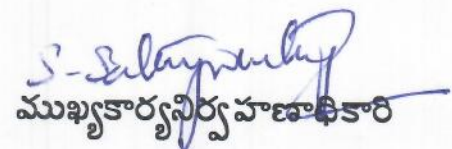 ముఖ్యకార్యనిర్వహణాధికారి